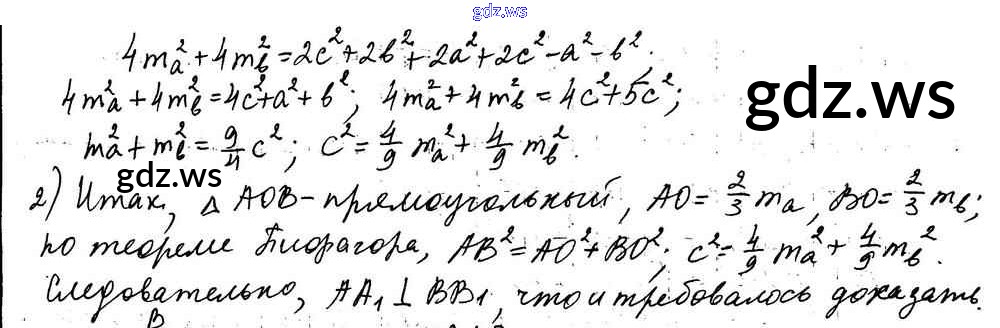 gdz.ws
4m²ₐ+4m²_b=2c²+2b²+2a²+2c²-a²-b²;
4m²ₐ+4m²_b=4c²+a²+b²; 4m²ₐ+4m²_b=4c²+5c²;
gdz.ws
m²ₐ+m²_b=9/4 c²; c²=4/9 m²ₐ+4/9 m²_b.
gdz.ws
2) Итак, △ AOB-прямоугольный, AO=2/3 mₐ, BO=2/3 m_b;
по теореме Пифагора, AB²=AO²+BO²; c²=4/9 m²ₐ+4/9 m²_b.
Следовательно, AA₁⊥BB₁, что и требовалось доказать.